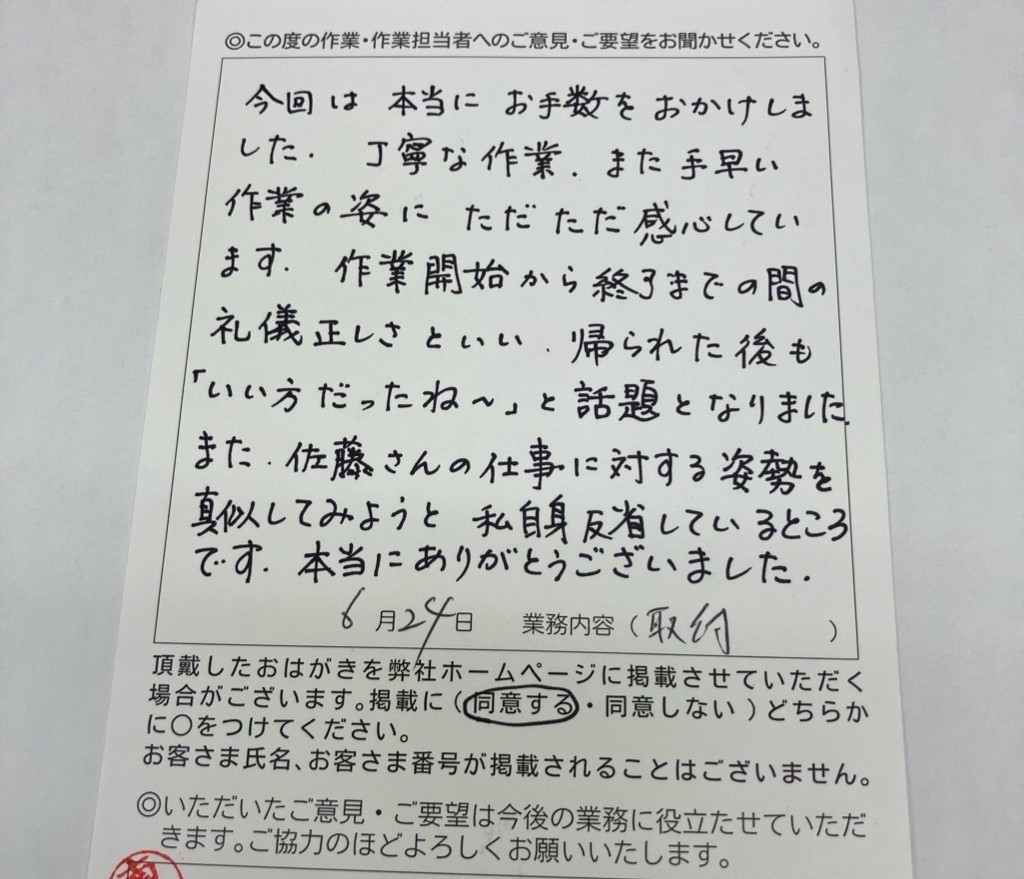 ◎この度の作業・作業担当者へのご意見・ご要望をお聞かせください。
今回は 本当に お手数を おかけしま
した. 丁寧な作業. また手早い
作業の姿に ただただ感心してい
ます. 作業開始から終了までの間の
礼儀正しさといい. 帰られた後も
「いい方だったね～」と話題となりました.
また. 佐藤さんの仕事に対する姿勢を
真似してみようと 私自身反省しているところ
です. 本当にありがとうございました.
6月24日 業務内容（取付）
頂戴したおはがきを弊社ホームページに掲載させていただく
場合がございます。掲載に（同意する・同意しない）どちらか
に〇をつけてください。
お客さま氏名、お客さま番号が掲載されることはございません。
◎いただいたご意見・ご要望は今後の業務に役立たせていただ
きます。ご協力のほどよろしくお願いいたします。